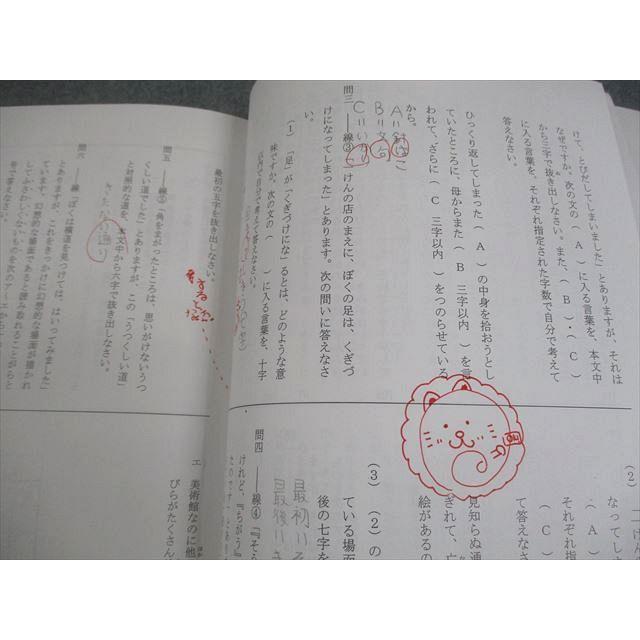 けて、とびだしてしまいました」とありますが、それは
なぜですか。次の文の（ A ）に入る言葉を、本文中
から三字で抜き出しなさい。また、（ B ）・（ C ）
に入る言葉を、それぞれ指定された字数で自分で考えて
答えなさい。
ひっくり返してしまった（ A ）の中身を拾おうとし
ていたところに、母からまた（ B 三字以内 ）を言
われて、さらに（ C 三字以内 ）をつのらせている
から。
A=
B=文句
C=いかり
問三 ――線③「 けんの店のまえに、ぼくの足は、くぎづ
けになってしまった」とあります。次の問いに答えなさ
い。
(1) 「足」が「くぎづけにな」るとは、どのような意
味ですか。次の文の（ ）に入る言葉を、十字
以内で自分で考えて答えなさい。
(2)
なってしま
それぞれ指
て答えなさ
（ A ）
（ C ）
見知らぬ通
ぎれて、亡
絵があるの
(3) (2)の
ている場面
後の七字を
最初=そ
最後=さ
問四 ――線④「『そら
けれど、『ちがう』
最初の五字を抜き出しなさい。
問五 ――線⑤「角をまがったところは、思いがけないうつ
くしい道でした」とありますが、この「うつくしい道」
と対照的な道を、本文中から六字で抜き出しなさい。
問六 ――線「ぼくは横道を見つけては、はいってみました」
とありますが、これをきっかけに幻想的な場面が描かれ
ています。幻想的な場面であると読み取れることがらと
してふさわしくないものを次のア〜エから
号で答えなさい。
エ 美術館なのに他
びらがたくさん